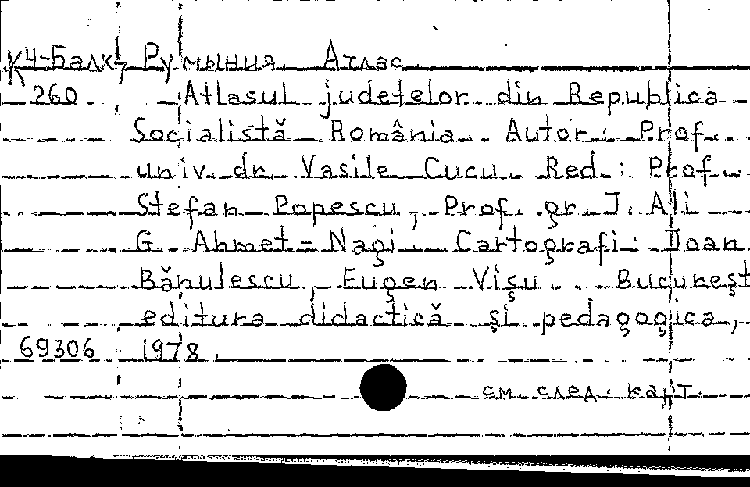 К4-Балк, Румыния. Атлас
260 Atlasul județelor din Republica
Socialistă România. Autor: Prof.
univ. dr. Vasile Cucu. Red.: Prof.
Ștefan Popescu, Prof. gr. I. Ali
G. Ahmet-Nagi. Cartografi: Ioan
Bănulescu, Eugen Vișu. București
editura didactică și pedagogica,
69306 1978.
см. след. карт.